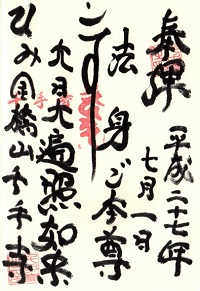 奉拝
平成二十七年
七月一日
法身ご本尊
大日大遍照如来
ひみ金橋山千手寺